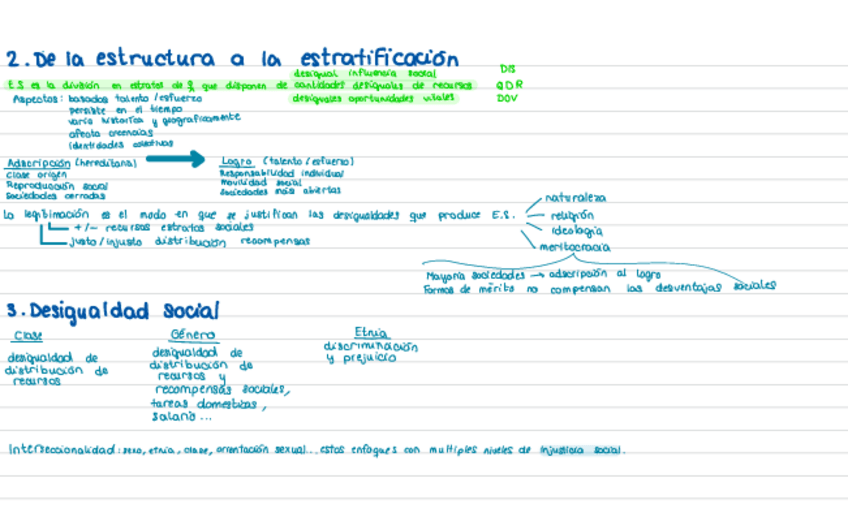 2. De la estructura a la estratificación
desigual influencia social DIS
E.S es la división en estratos de que disponen de cantidades desiguales de recursos QDR
desiguales oportunidades vitales DOV
Aspectos: basados talento/esfuerzo
persiste en el tiempo
varía histórica y geograficamente
afecta creencias
identidades colectivas
Adscripción (hereditaria) → Logro (talento/esfuerzo)
Clase origen
Reproducción social
Sociedades cerradas
Responsabilidad individual
movilidad social
Sociedades más abiertas
La legitimación es el modo en que se justifican las desigualdades que produce E.S.
+/- recursos estratos sociales
justo/injusto distribución recompensas
naturaleza
religión
ideología
meritocracia
Mayoría sociedades → adscripción al logro
Formas de mérito no compensan las desventajas sociales
3. Desigualdad social
Clase
desigualdad de
distribución de
recursos
Género
desigualdad de
distribución de
recursos y
recompensas sociales,
tareas domesticas,
salario...
Etnia
discriminación
y prejuicio
Interseccionalidad: sexo, etnia, clase, orientación sexual... estos enfoques con multiples niveles de injusticia social.